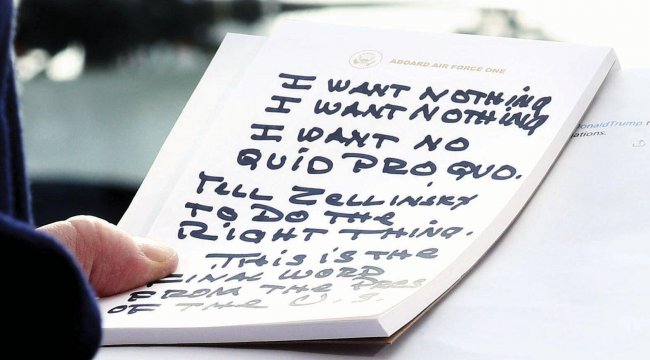 ABOARD AIR FORCE ONE
I WANT NOTHING
I WANT NOTHING
I WANT NO
QUID PRO QUO.
TELL ZELLINSKY
TO DO THE
RIGHT THING.
THIS IS THE
FINAL WORD
FROM THE PRES
OF THE U.S.
DonaldTrump.
ations.